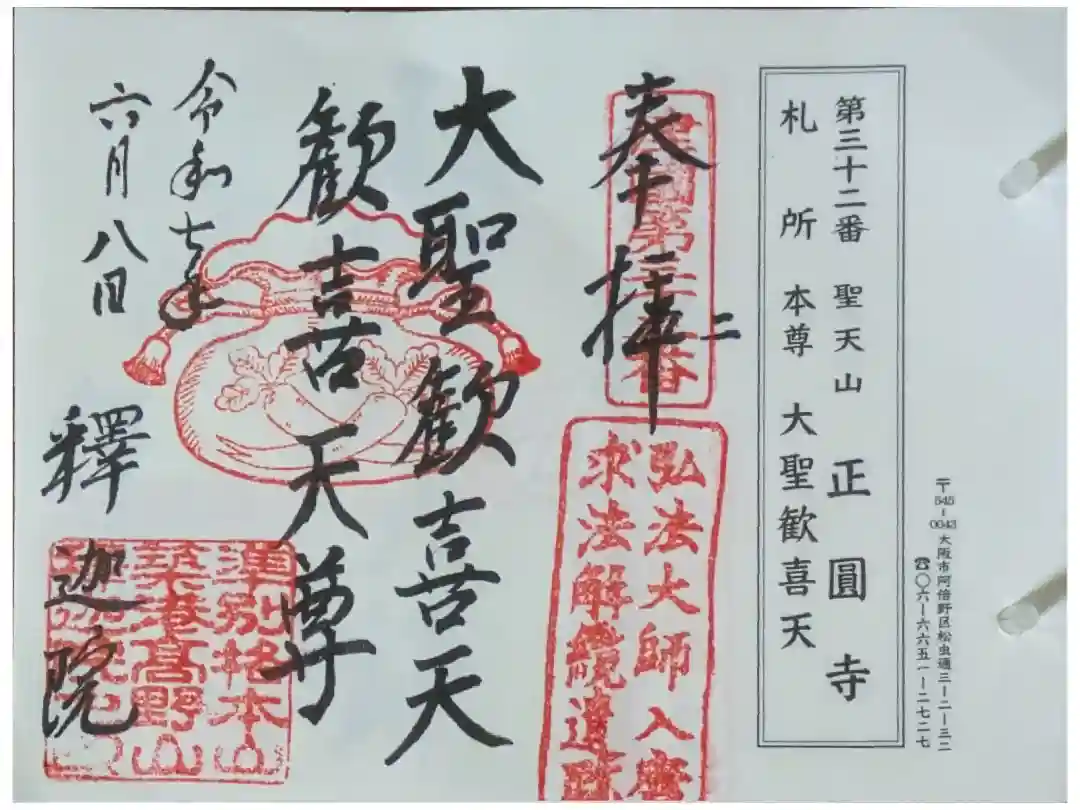 〒545-0043 大阪市阿倍野区松虫通三-二-三二
☎〇六-六六五一-二七二七
第三十二番 聖天山 正圓寺
札所本尊 大聖歓喜天
奉拝
二
弘法大師入
求法解纜遺跡
大聖歡喜天
歡喜天尊
令和七年
六月八日
釋迦院
準別格本山
築港高野山